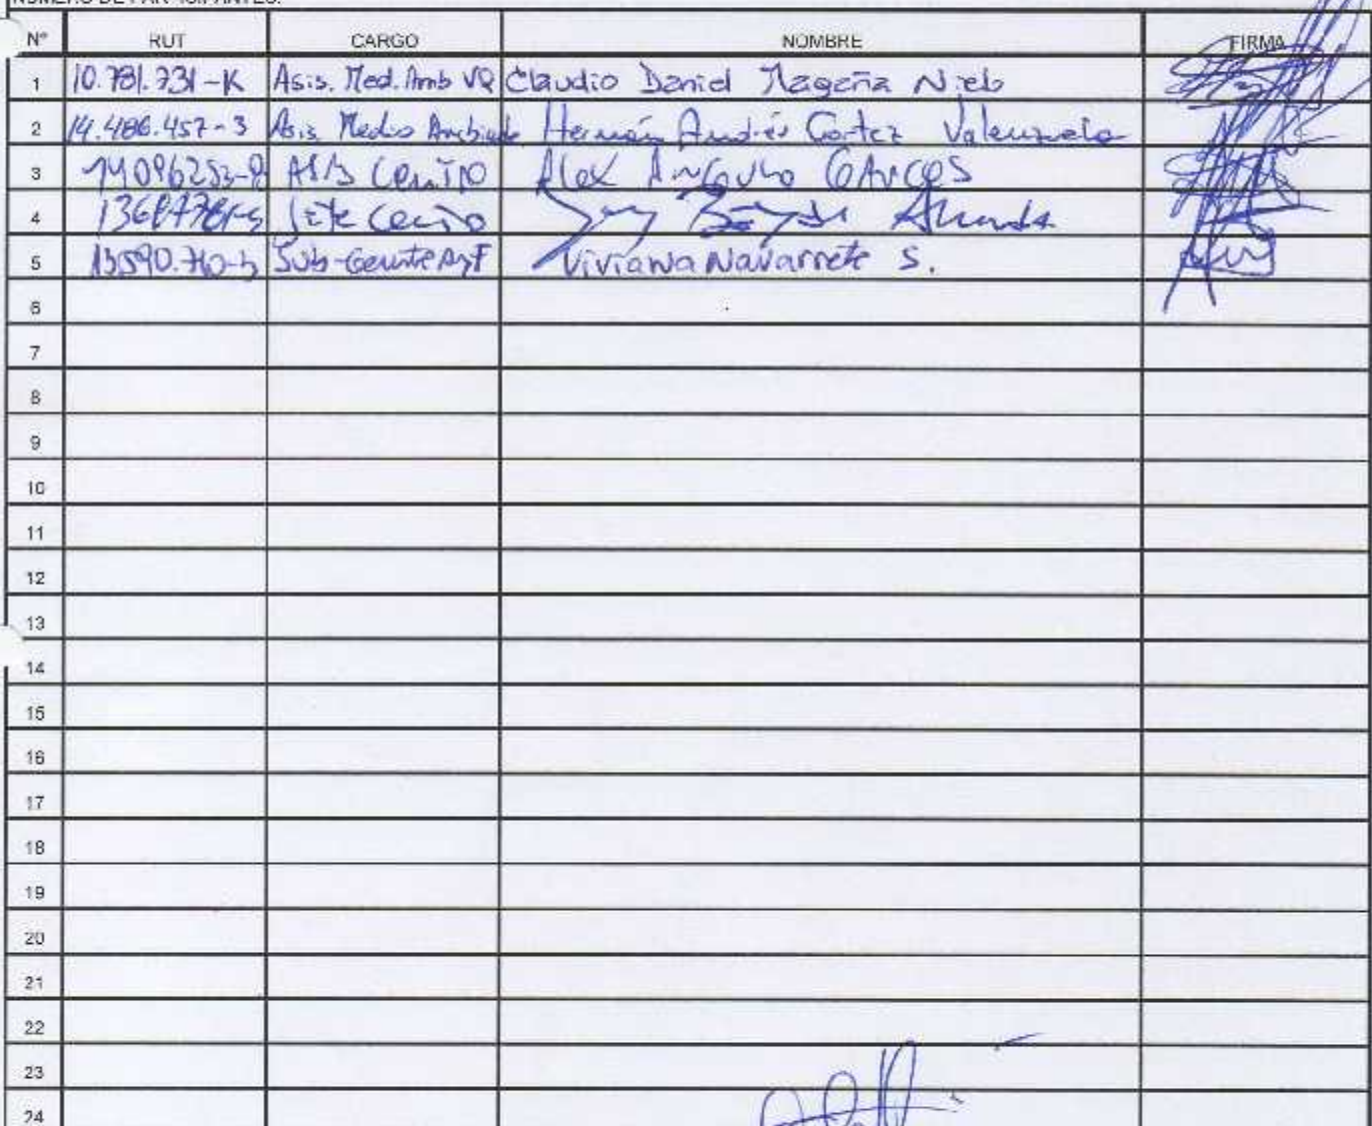 NÚMERO DE PARTICIPANTES:
N° RUT CARGO NOMBRE FIRMA
1 10.781.731-K Asis. Med. Amb VR Claudio Daniel Magaña Nieto
2 14.486.457-3 Asis Medio Ambiente Hernán Andrés Cortez Valenzuela
3 Asis Centro Alex Angulo Garces
4 Jefe Centro
5 Sub-Gerente Viviana Navarrete S.
6
7
8
9
10
11
12
13
14
15
16
17
18
19
20
21
22
23
24